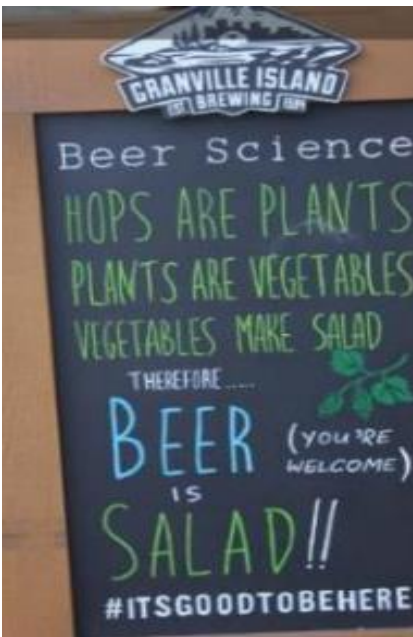 GRANVILLE ISLAND
EST. BREWING 1984
Beer Science
HOPS ARE PLANTS
PLANTS ARE VEGETABLES
VEGETABLES MAKE SALAD
THEREFORE .....
BEER (YOU'RE
WELCOME)
IS
SALAD!!
#ITSGOODTOBEHERE